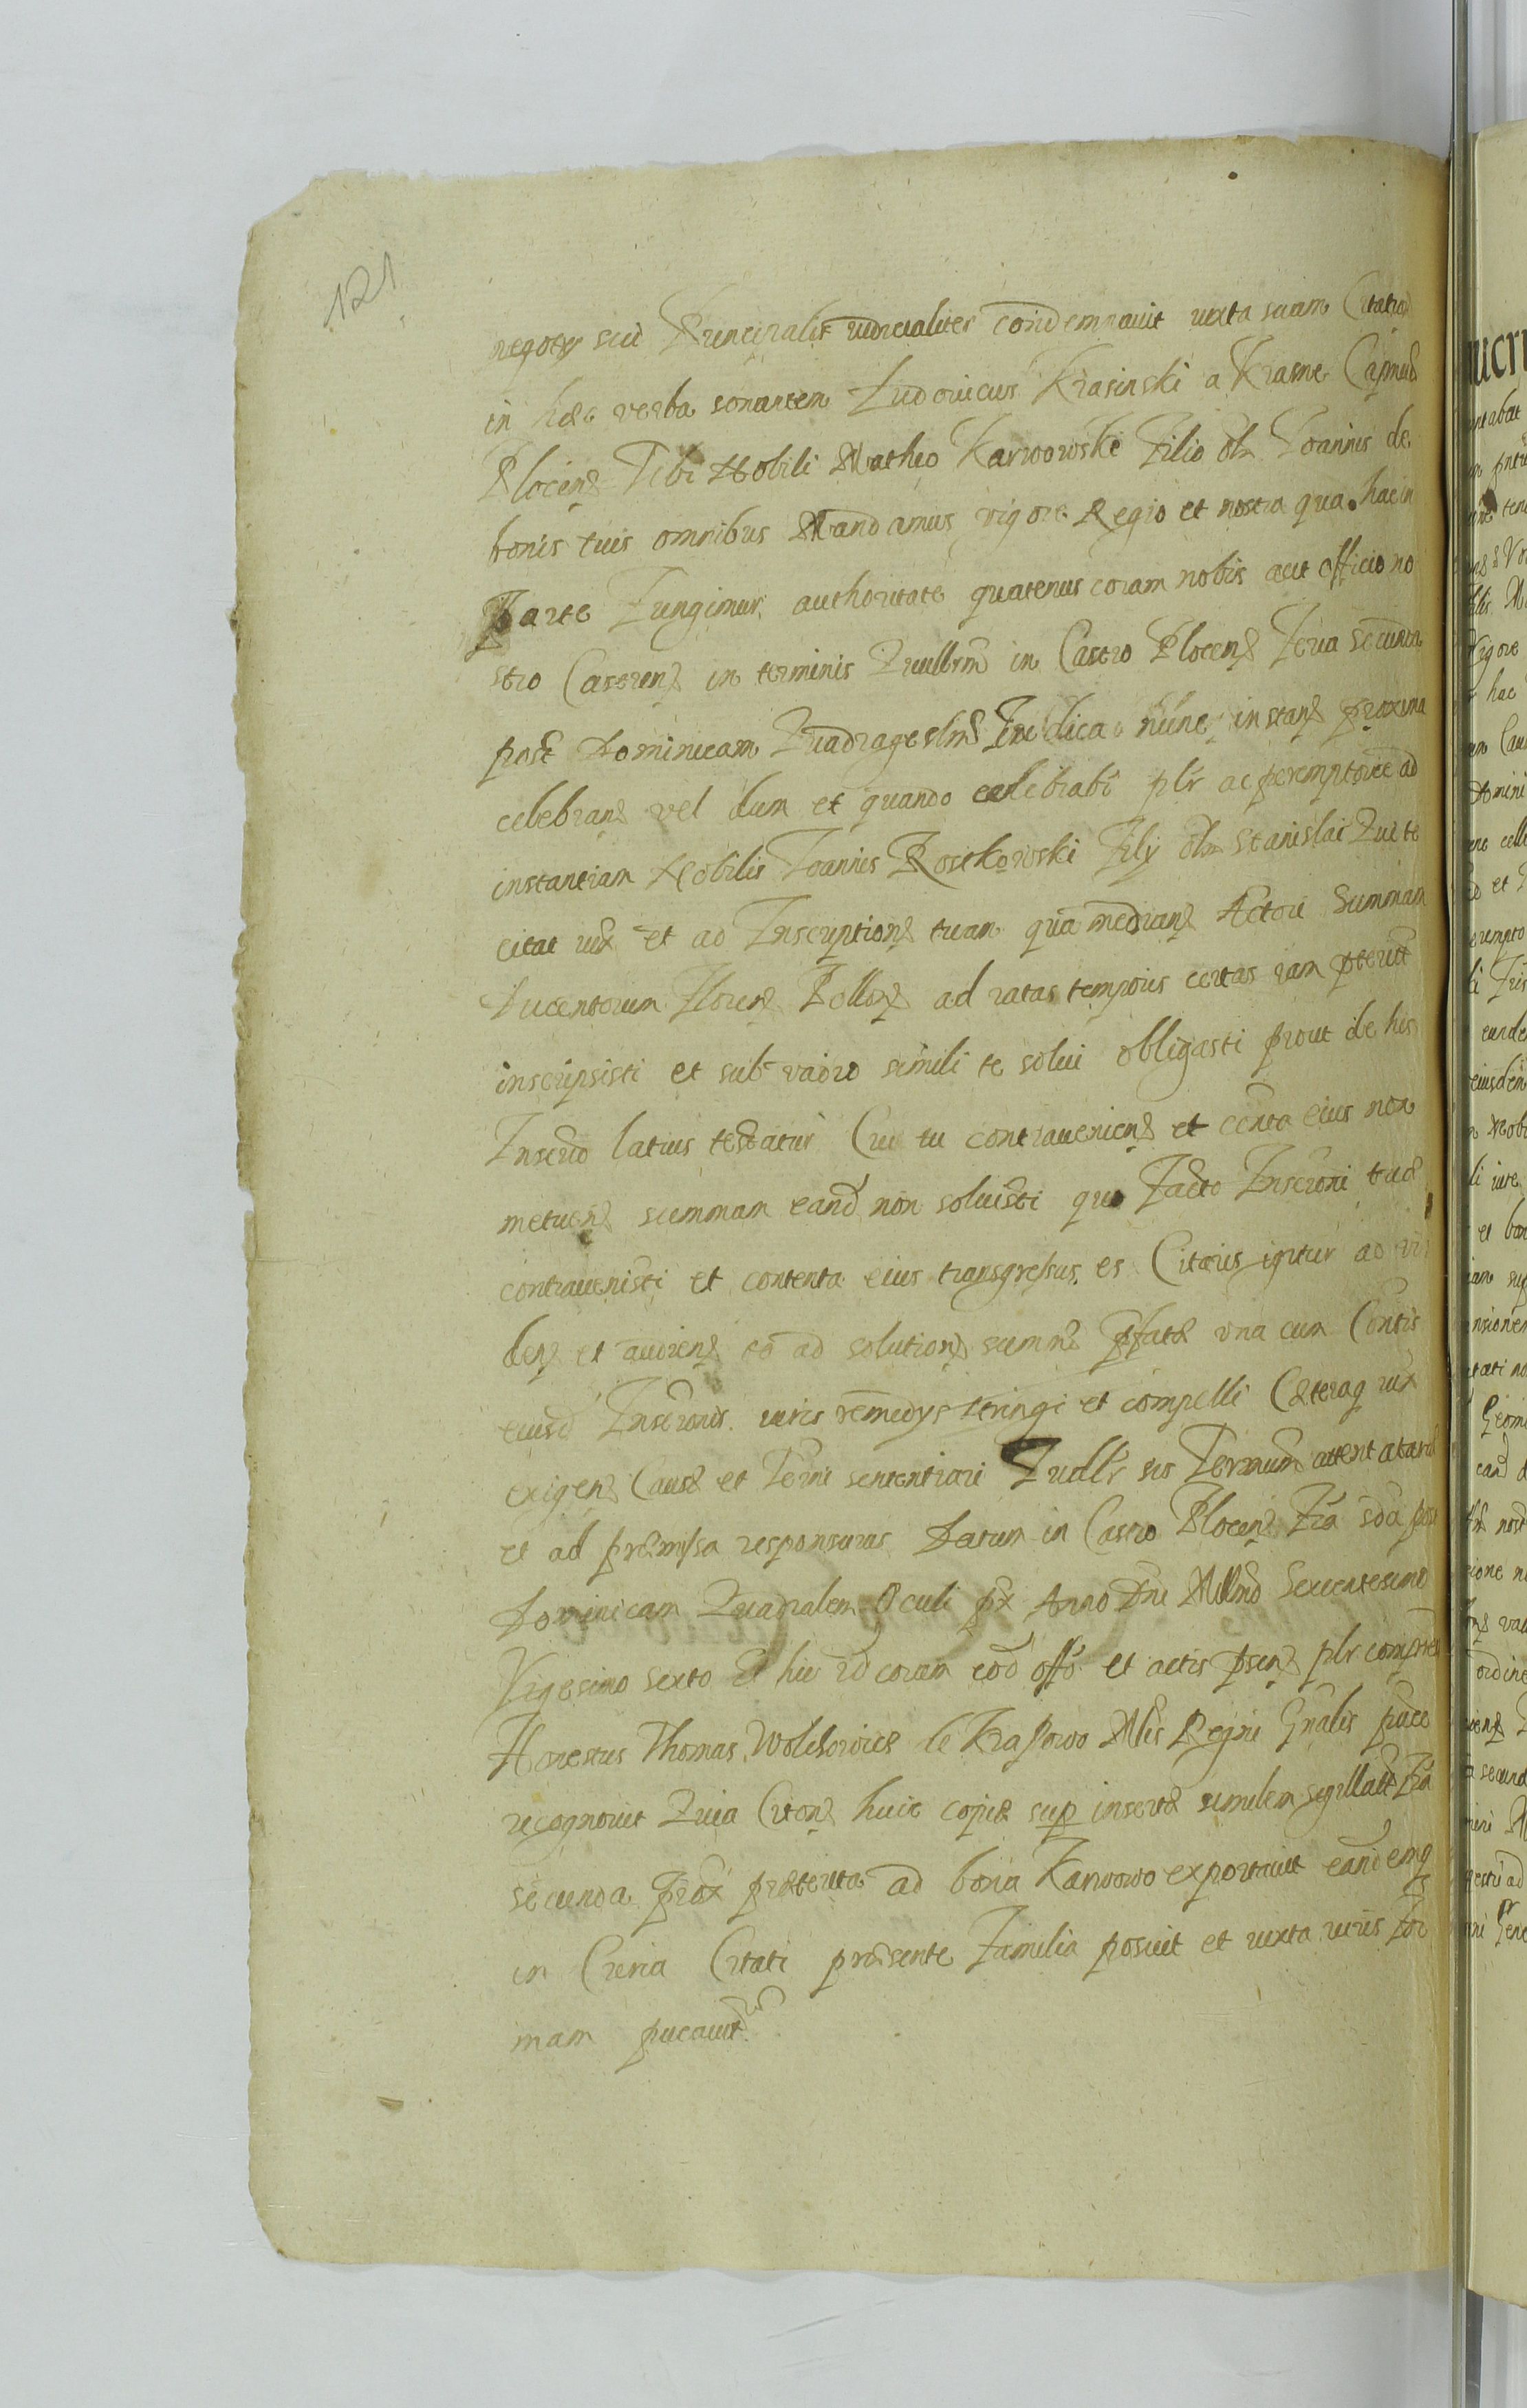 121
negoty sui Principalis iudicialiter condemnauit iuxta suam Citation
in hæc verba sonantem Ludouicus Krasinski a Krasne Capneus
Plocens Tibi Nobili Matheo Karwowski Filio olim Joannis de
bonis tuis omnibus Mandamus vigore Regio et nostra qua hac in
Parte Fungimur authoritate quatenus coram nobis aut officio no
stro Castren in terminis Quullrm in Castro Plocen Feria secunda
post Dominicam Quadragesim Judica nunc instan proxima
celebran vel dum et quando celebrabr plr ac peremptorie ad
instantiam Nobilis Joannis Rosckowski Fily olim Stanislai Qui te
citat iux et ad Inscription tuam qua median Actori Summam
Ducentorum Floren Pollon ad ratas temporis certas iam pterit
inscripsisti et sub vadio simili te solui obligasti prout de his
Inscrio latius testatur Cui tu contraueniens et centa eius non
metuen summam eand non soluisti quo Facto Inscroni tuæ
contrauenisti et contenta eius transgressus es Citaris igitur ad vi
den et audien te ad solution summæ pfatæ vna cum Contis
eiusd Inscronis iuris remedys stringi et compelli Cæteraq iux
exigen Causæ et Termi sententiari Quullr sis Terminum attentatur
et ad præmissa responsurus Datum in Castro Plocen Fra sda post
Dominicam Quadralem Oculi px Anno Dni Millmo Sexcentesimo
Vigesimo sexto Et hic id coram eod offo et actis psen plr comprens
Honestus Thomas Wolchowicz de Krassowo Mlis Regni Gnalis præco
recognouit Quia Citon huic copiæ sup insertæ similem sigillatt Fra
secunda prox præterita ad bona Karwowo exportauit eandemq
in Curia Citati præsente Familia posuit et iuxta iuris For
mam pucauit